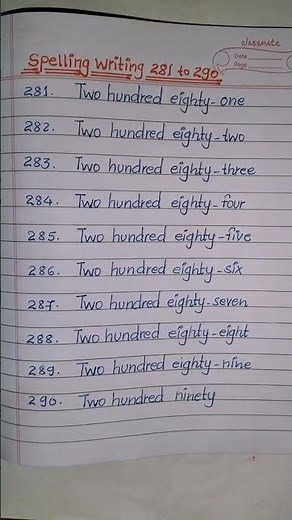 classmate
Date
Page
Spelling Writing 281 to 290
281. Two hundred eighty-one
282. Two hundred eighty-two
283. Two hundred eighty-three
284. Two hundred eighty-four
285. Two hundred eighty-five
286. Two hundred eighty-six
287. Two hundred eighty-seven
288. Two hundred eighty-eight
289. Two hundred eighty-nine
290. Two hundred ninety